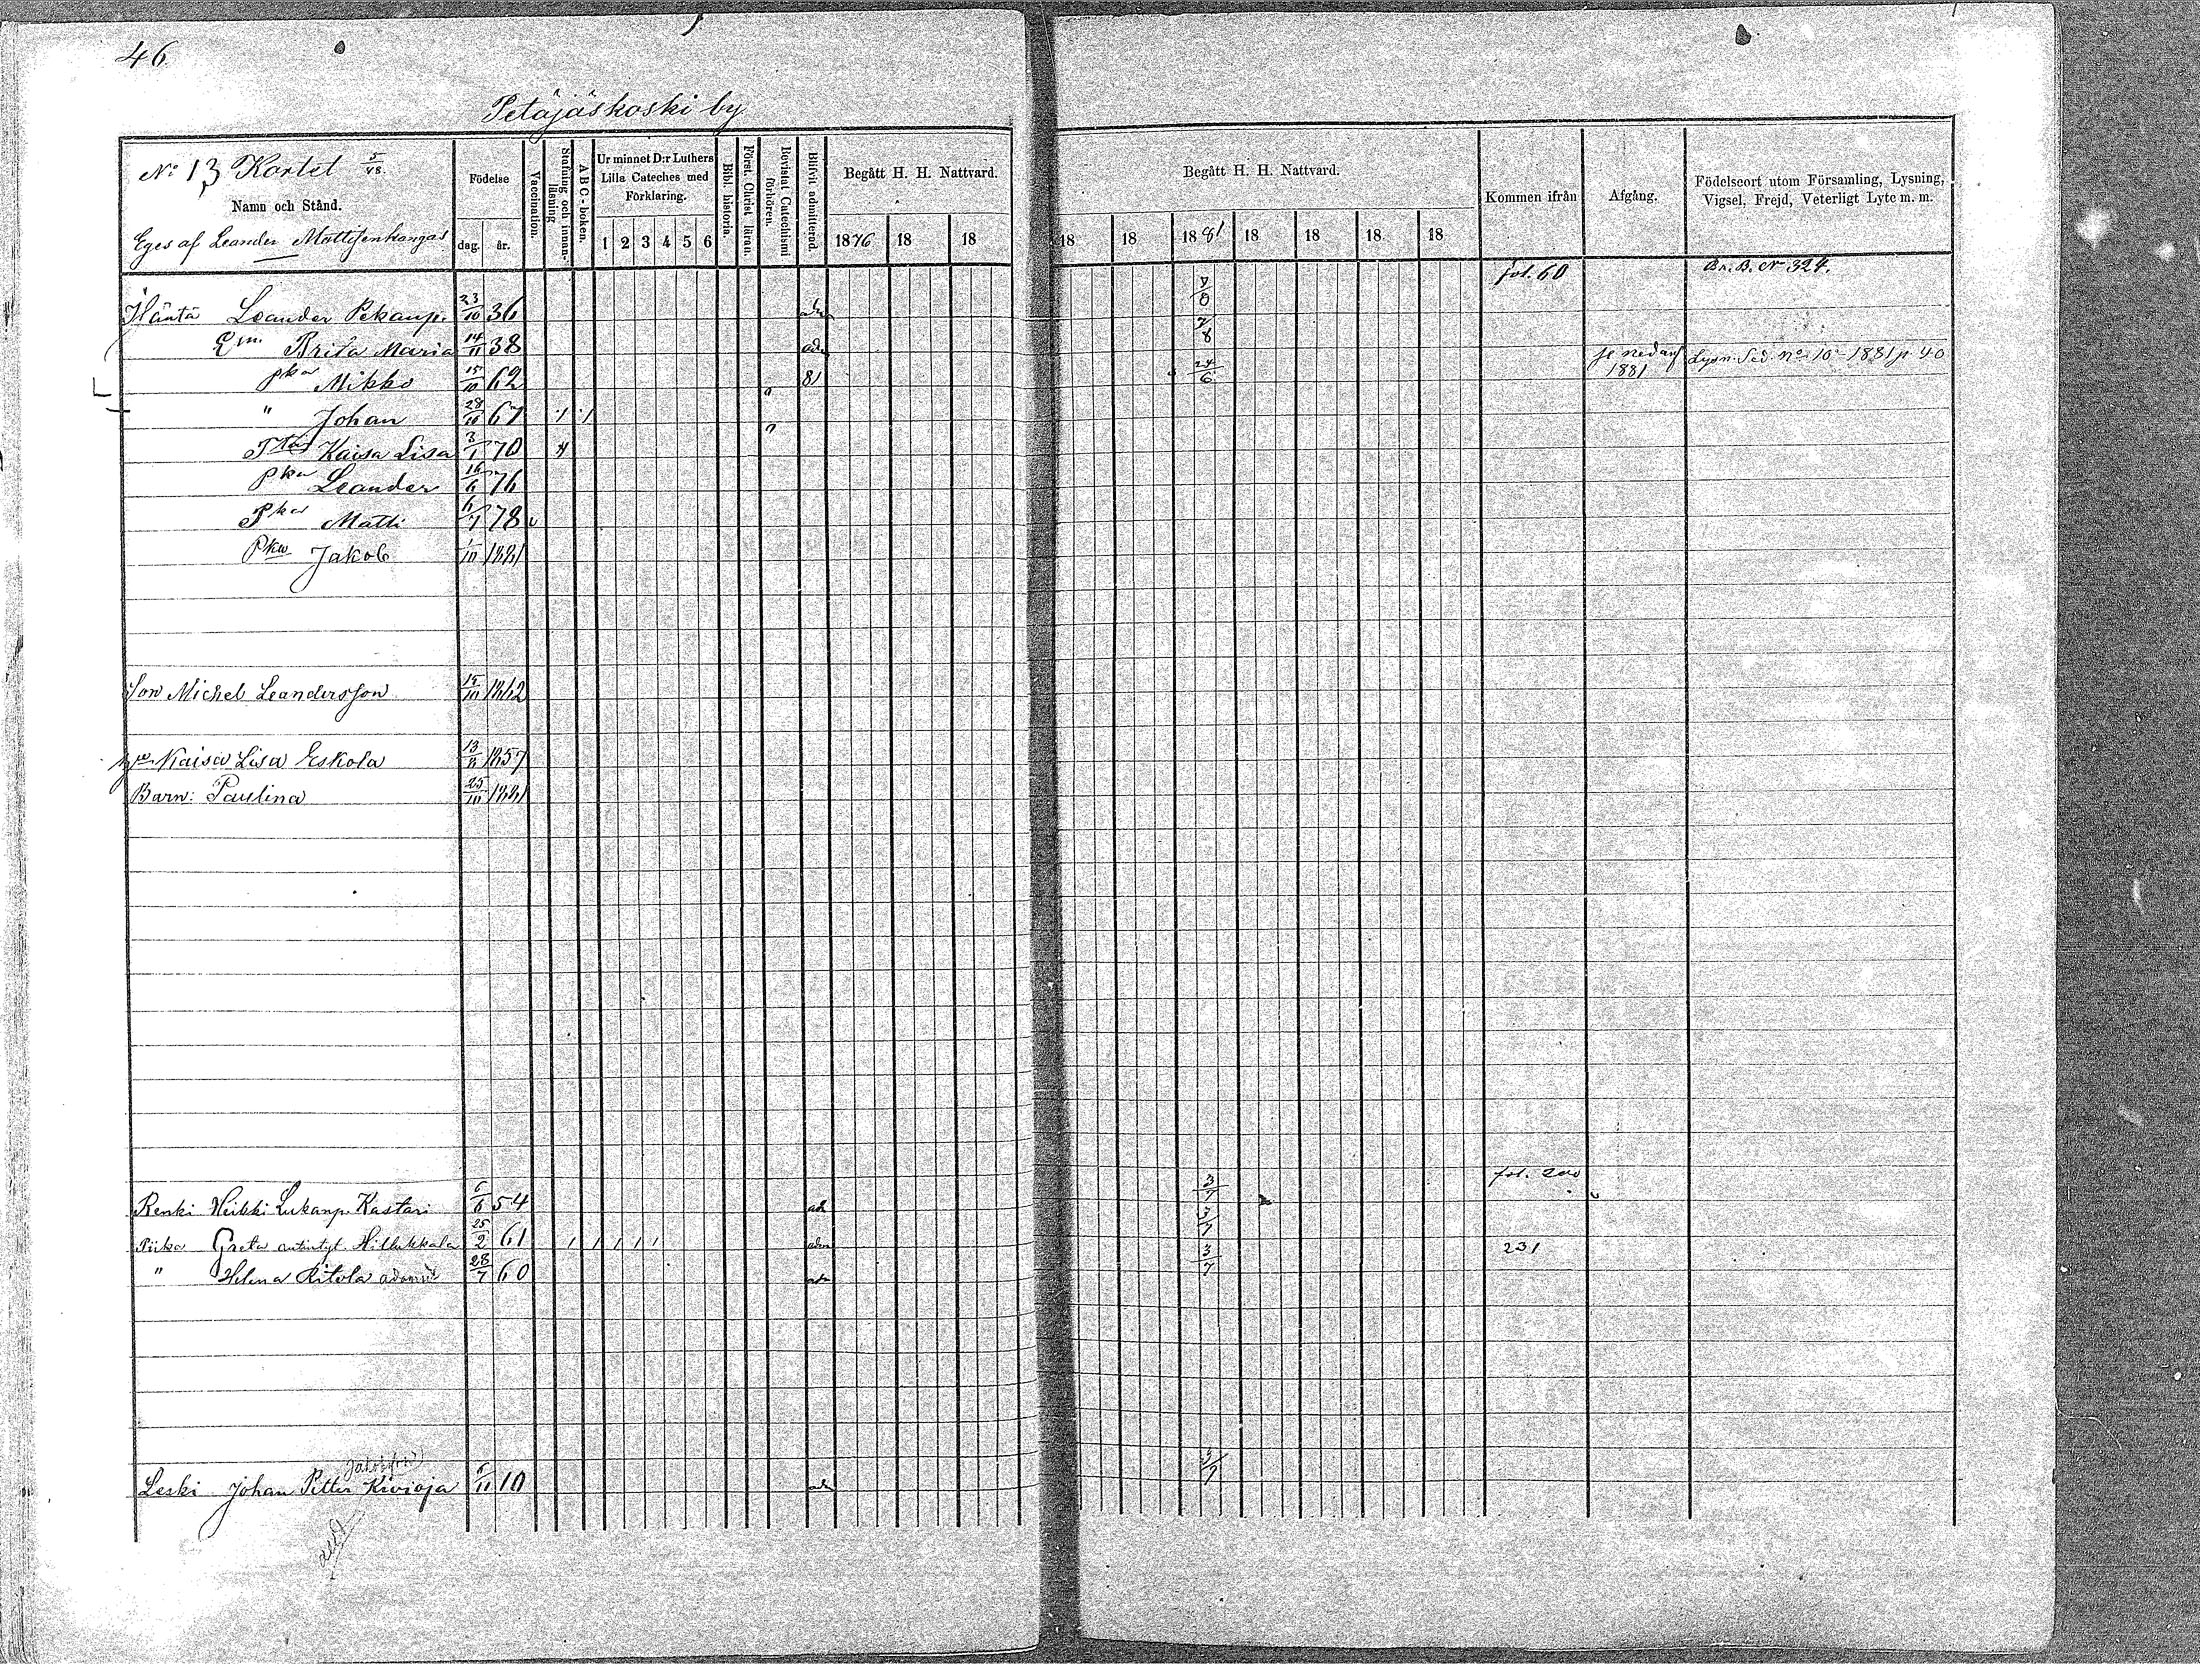 46
Petäjäskoski by
No 13 Kartel 5/48.
Namn och Stånd.
Eges af Leander Mattssenkangas
Födelse
dag. år.
Vaccination.
Stafning och innanläsning
A B C - boken.
Ur minnet D:r Luthers Lilla Cateches med Förklaring.
1 2 3 4 5 6
Bibl. historia.
Först. Christ. läran.
Bevistat Catechismi förhören.
Blifvit admitterad.
Begått H. H. Nattvard.
1876 18 18
Begått H. H. Nattvard.
18 18 1881 18 18 18 18
Kommen ifrån
Afgång.
Födelseort utom Församling, Lysning, Vigsel, Frejd, Veterligt Lyte m. m.
fol. 60 Br. B. No 324.
Leander Pekanp. 23/10 36 adm 7/8
Em. Brita Maria 14/11 38 adm 7/8
pka Mikko 15/10 62 81 24/6 se nedanf 1881 Lysn. Sed. no 10 - 1881 p 40
" Johan 28/10 67
Tkär Kaisa Lisa 3/1 70
pka Leander 16/6 76
Pka Matti 6/7 78
Pka Jakob 1/10 1881
Son Michel Leandersson 15/10 1862
Kaisa Lisa Eskola 13/8 1857
Barn: Paulina 25/10 1881
fol. 200
Renki Heikki Lukanp. Kastari 6/6 54 ad 3/7
Piika Greta Hillukkala 25/2 61 adm 3/7
231
" Helena Ritola 28/7 60 adm 3/7
Jakobsson
Leski Johan Petter Kivioja 6/11 10 adm 3/7